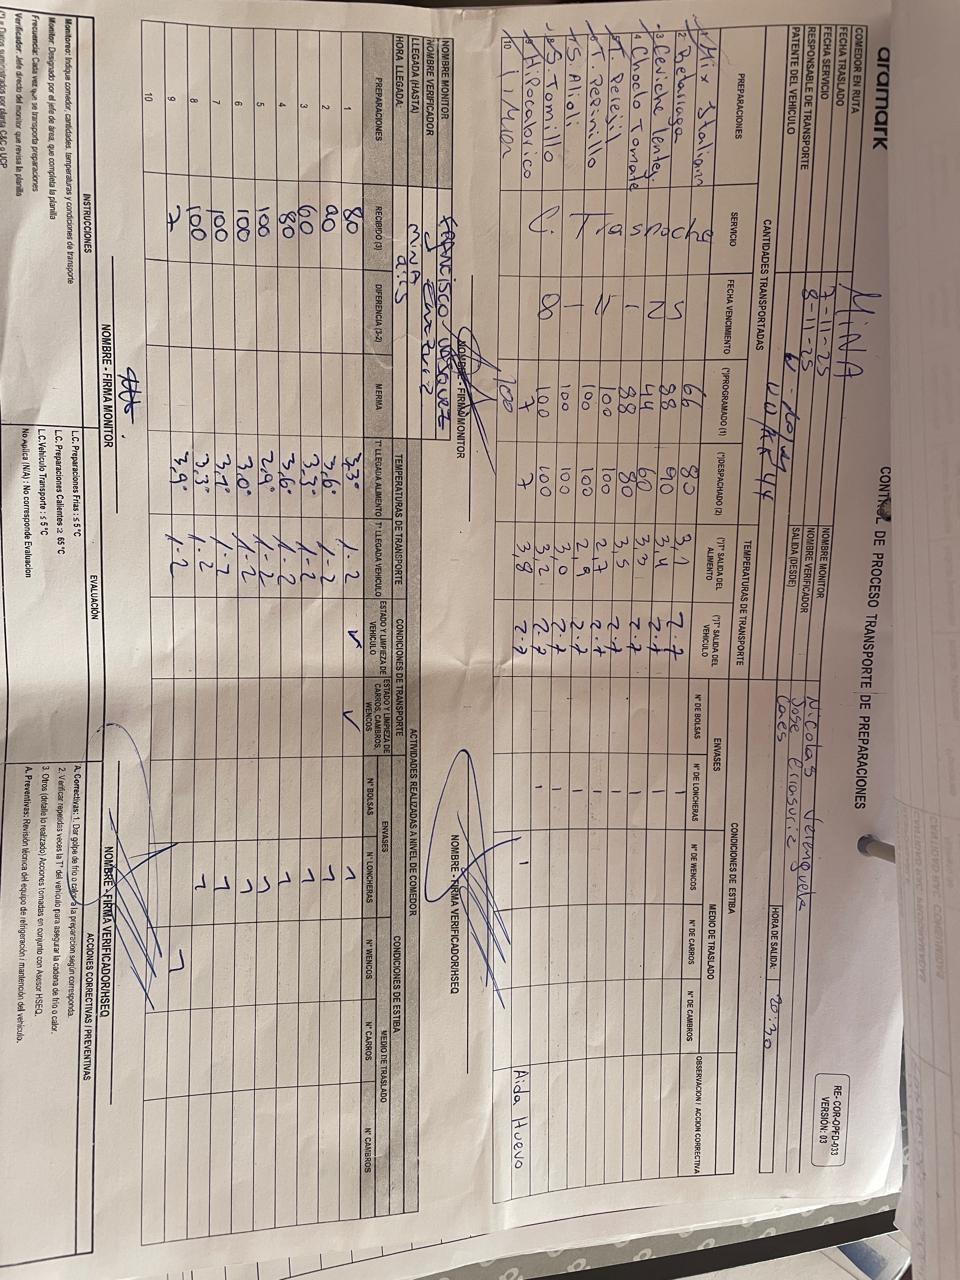 aramark
CONTROL DE PROCESO TRANSPORTE DE PREPARACIONES
RE-COR-OPFD-033
VERSIÓN: 03
COMEDOR EN RUTA MINA
FECHA TRASLADO 7-11-25
FECHA SERVICIO 8-11-25
RESPONSABLE DE TRANSPORTE
PATENTE DEL VEHICULO
NOMBRE MONITOR Nicolas
NOMBRE VERIFICADOR Jose Errasuriz
SALIDA (DESDE)
HORA DE SALIDA: 20:30
CANTIDADES TRANSPORTADAS
TEMPERATURAS DE TRANSPORTE
CONDICIONES DE ESTIBA
ENVASES
MEDIO DE TRASLADO
PREPARACIONES SERVICIO FECHA VENCIMIENTO (*)PROGRAMADO (1) (*)DESPACHADO (2) (*)T° SALIDA DEL ALIMENTO (*)T° SALIDA DEL VEHICULO N° DE BOLSAS N° DE LONCHERAS N° DE WENCOS N° DE CARROS N° DE CAMBROS OBSERVACION / ACCION CORRECTIVA
1 Mix Italiano 66 80 3,1 2.7 1
2 Betarraga 88 90 3,4 2.7 1
3 Ceviche lentej. 44 60 3,3 2.7 1
4 Choclo Tomate 88 80 3,5 2.7 1
T. Perejil 100 100 2,7 2.7 1
T. Pepinillo 100 100 2,9 2.7 1
S. Alioli 100 100 3,0 2.7 1
S. Tomillo 100 100 3,2 2.7 1
Hipocalorico 7 7 3,8 2.7 1 Aida Huevo
10 Limon 100
NOMBRE - FIRMA MONITOR
NOMBRE - FIRMA VERIFICADOR/HSEQ
NOMBRE MONITOR FRANCISCO VASQUEZ
NOMBRE VERIFICADOR
LLEGADA (HASTA) MINA
HORA LLEGADA:
ACTIVIDADES REALIZADAS A NIVEL DE COMEDOR
TEMPERATURAS DE TRANSPORTE
CONDICIONES DE TRANSPORTE
CONDICIONES DE ESTIBA
ENVASES
MEDIO DE TRASLADO
PREPARACIONES RECIBIDO (3) DIFERENCIA (3-2) MERMA T° LLEGADA ALIMENTO T° LLEGADO VEHICULO ESTADO Y LIMPIEZA DE VEHICULO ESTADO Y LIMPIEZA DE CARROS, CAMBROS, WENCOS N° BOLSAS N° LONCHERAS N° WENCOS N° CARROS N° CAMBROS
1 80 3,3° 1.2 ✓ ✓ 1
2 90 3,6° 1.2 1
3 60 3,3° 1.2
4 80 3,6° 1.2 1
5 100 2,9° 1.2 1
6 100 3,0° 1.2 1
7 100 3,1° 1.2 1
8 100 3,3° 1.2 1
9 7 3,9° 1.2 1
10
NOMBRE - FIRMA MONITOR
NOMBRE - FIRMA VERIFICADOR/HSEQ
INSTRUCCIONES
Monitoreo: Indique comedor, cantidades, temperaturas y condiciones de transporte
Monitor: Designado por el jefe de área, que completa la planilla
Frecuencia: Cada vez que se transporta preparaciones
Verificador: Jefe directo del monitor que revisa la planilla
(*) = Datos suministrados por planta C&C o UCP
EVALUACIÓN
L.C. Preparaciones Frías : ≤ 5 °C
L.C. Preparaciones Calientes ≥ 65 °C
L.C. Vehículo Transporte : ≤ 5 °C
No Aplica (N/A) : No corresponde Evaluacion
ACCIONES CORRECTIVAS / PREVENTIVAS
A. Correctivas: 1. Dar golpe de frío o calor a la preparación según corresponda.
2. Verificar repetidas veces la T° del vehículo para asegurar la cadena de frío o calor.
3. Otros (detalle lo realizado) Acciones tomadas en conjunto con Asesor HSEQ.
A. Preventivas: Revisión técnica del equipo de refrigeración / mantención del vehículo.